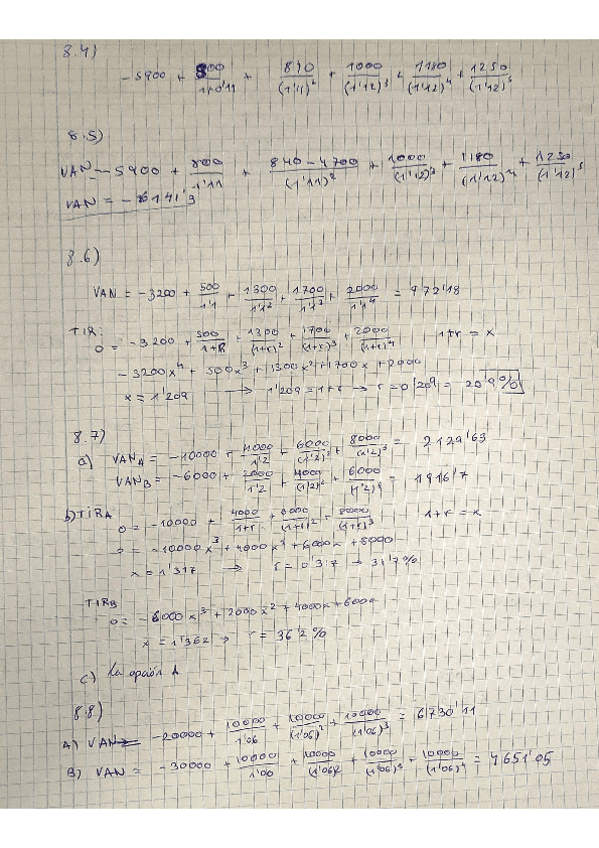 8.4)
-5900 + 800/1+0'11 + 840/(1'11)² + 1000/(1'12)³ + 1180/(1'12)⁴ + 1250/(1'12)⁵
8.5)
VAN = -5900 + 800/1'11 + 840-4700/(1'11)² + 1000/(1'12)³ + 1180/(1'12)⁴ + 1250/(1'12)⁵
VAN = -6141'3
8.6)
VAN = -3200 + 500/1'1 + 1300/1'1² + 1700/1'1³ + 2000/1'1⁴ = 972'18
TIR:
0 = -3200 + 500/1+R + 1300/(1+r)² + 1700/(1+r)³ + 2000/(1+r)⁴ 1+r = x
-3200x⁴ + 500x³ + 1300x² + 1700x + 2000
x = 1'209 → 1'209 = 1+r → r = 0'209 = 20'9%
8.7)
a) VAN_A = -10000 + 4000/1'2 + 6000/(1'2)² + 8000/(1'2)³ = 2129'63
VAN_B = -6000 + 2000/1'2 + 4000/(1'2)² + 6000/(1'2)³ = 1916'7
b) TIR_A
0 = -10000 + 4000/1+r + 6000/(1+r)² + 8000/(1+r)³ 1+r = x
0 = -10000x³ + 4000x² + 6000x + 8000
x = 1'317 → r = 0'317 → 31'7%
TIR_B
0 = -6000x³ + 2000x² + 4000x + 6000
x = 1'362 → r = 36'2%
c) La opción A
8.8)
A) VAN = -20000 + 10000/1'06 + 10000/(1'06)² + 10000/(1'06)³ = 6730'11
B) VAN = -30000 + 10000/1'06 + 10000/(1'06)² + 10000/(1'06)³ + 10000/(1'06)⁴ = 4651'05